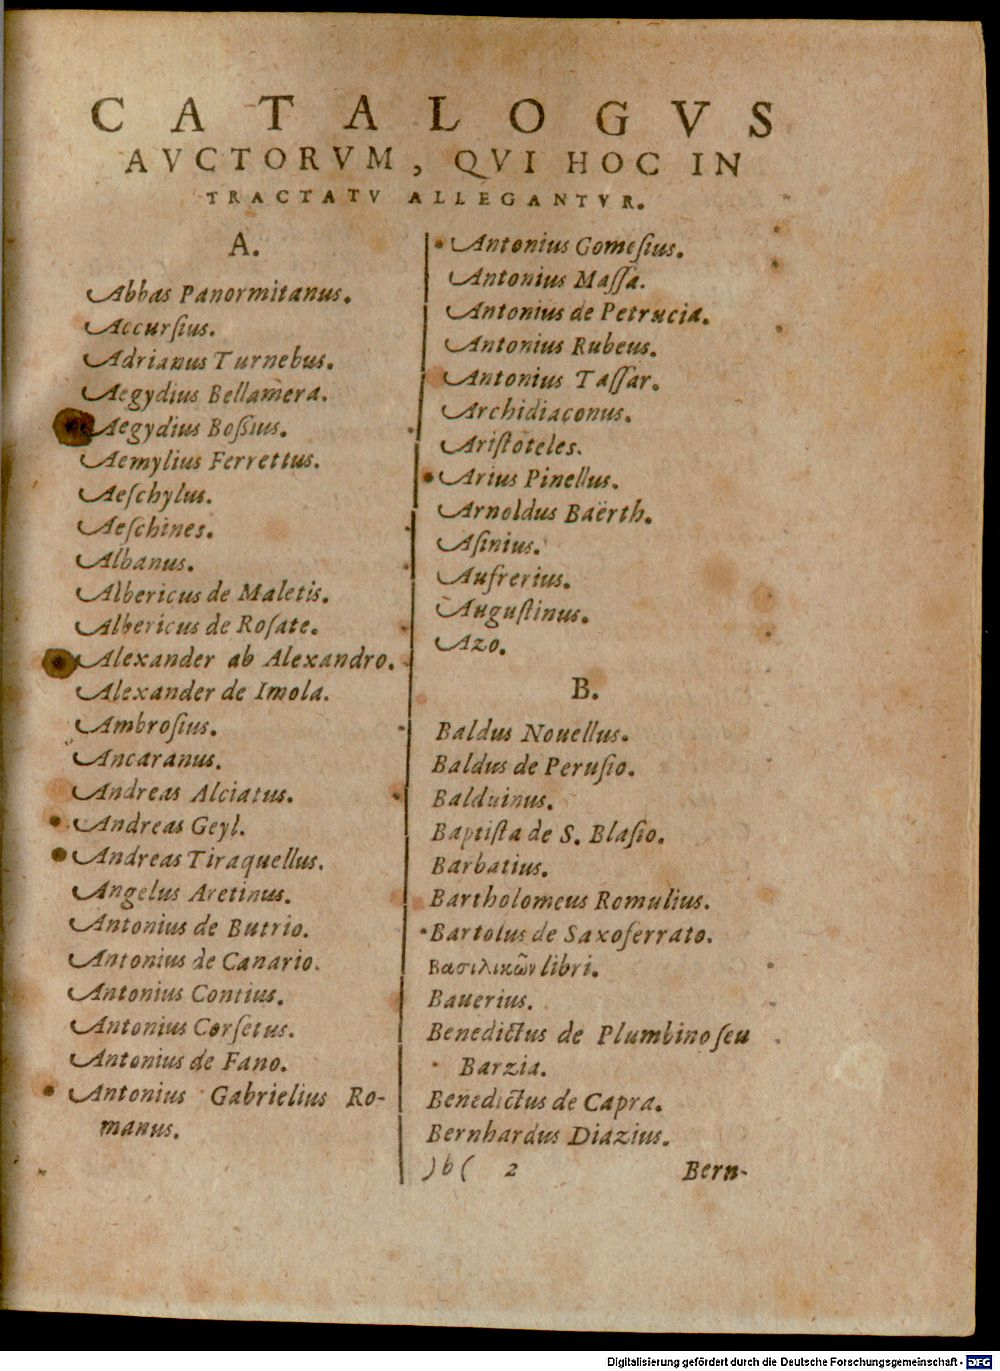 CATALOGVS
AVCTORVM, QVI HOC IN
TRACTATV ALLEGANTVR.
A.
Abbas Panormitanus.
Accurſius.
Adrianus Turnebus.
Aegydius Bellamera.
Aegydius Boſsius.
Aemylius Ferrettus.
Aeſchylus.
Aeſchines.
Albanus.
Albericus de Maletis.
Albericus de Roſate.
Alexander ab Alexandro.
Alexander de Imola.
Ambroſius.
Ancaranus.
Andreas Alciatus.
Andreas Geyl.
Andreas Tiraquellus.
Angelus Aretinus.
Antonius de Butrio.
Antonius de Canario.
Antonius Contius.
Antonius Corſetus.
Antonius de Fano.
Antonius Gabrielius Ro-
manus.
Antonius Gomeſius.
Antonius Maſſa.
Antonius de Petrucia.
Antonius Rubeus.
Antonius Taſſar.
Archidiaconus.
Ariſtoteles.
Arius Pinellus.
Arnoldus Baërth.
Aſinius.
Aufrerius.
Auguſtinus.
Azo.
B.
Baldus Nouellus.
Baldus de Peruſio.
Balduinus.
Baptiſta de S. Blaſio.
Barbatius.
Bartholomeus Romulius.
Bartolus de Saxoferrato.
Βασιλικῶν libri.
Bauerius.
Benedictus de Plumbino ſeu
Barzia.
Benedictus de Capra.
Bernhardus Diazius.
)b( 2
Bern-
Digitalisierung gefördert durch die Deutsche Forschungsgemeinschaft - DFG